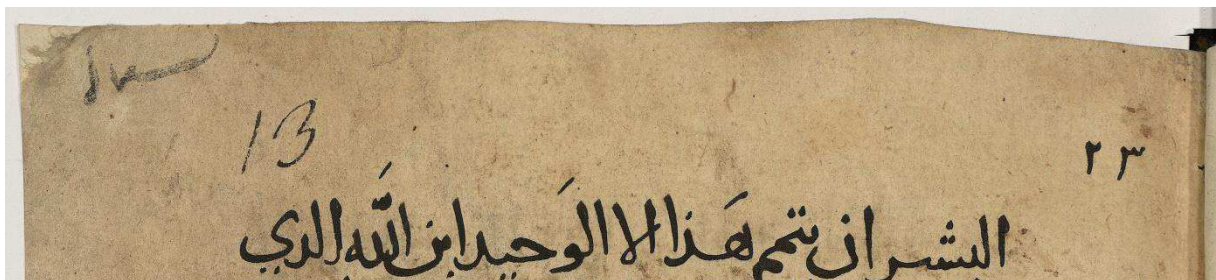 13
٢٣
البشر ان تتم هَذا الا الوَحيد ابن اللَه الدي